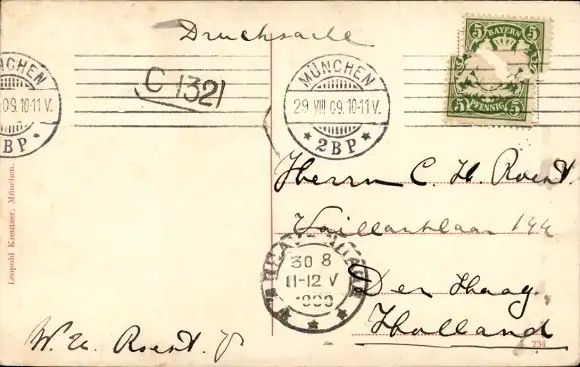 Drucksache
BAYERN
5 5
PFENNIG
MÜNCHEN
09. 10-11 V.
2BP
C 1321
MÜNCHEN
29 VIII 09. 10-11 V.
* 2BP *
Herrn C. H. Roest.
Vaillantlaan 144
Den Haag.
Holland
'S GRAVENHAGE
30 8
11-12 V
1909
W. H. Roest. Jr
Leopold Kreutzer, München.
234